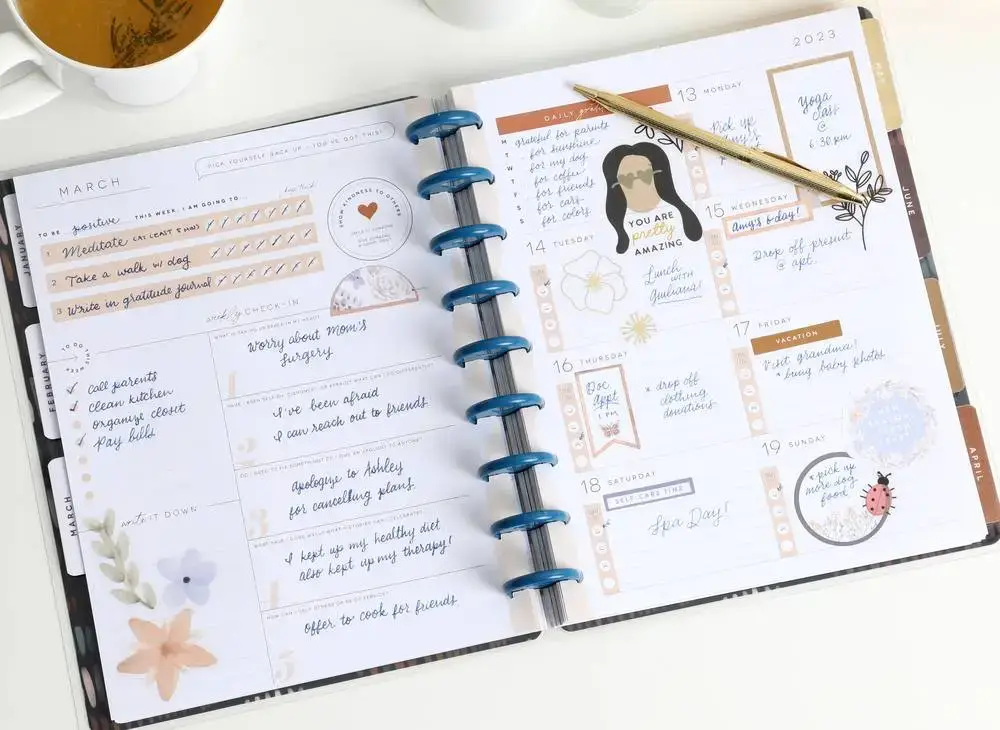 MARCH
PICK YOURSELF BACK UP - YOU'VE GOT THIS!
TO BE positive THIS WEEK, I AM GOING TO...
1 Meditate (AT LEAST 5 MIN)
2 Take a walk w/ dog
3 Write in gratitude journal
SHOW KINDNESS TO OTHERS
weekly CHECK-IN
TO DO THIS
call parents
clean kitchen
organize closet
Pay bills
write IT DOWN
1
Worry about Mom's
surgery
I've been afraid
I can reach out to friends
3
apologize to Ashley
for cancelling plans.
I kept up my healthy diet
also kept up my therapy!
5
offer to cook for friends
JANUARY
FEBRUARY
MARCH
2023
DAILY
M grateful for parents
T - for sunshine
W - for my dog
T - for coffee
F - for friends
S - for cars
S - for colors
YOU ARE
pretty
AMAZING
13 MONDAY
Pick up
Amy's
Yoga
class
@
6:30 pm
14 TUESDAY
Lunch
WITH
Giuliana!
15 WEDNESDAY
Amy's b-day!
Drop off present
@ apt.
16 THURSDAY
Doc
appt
1 PM
* drop off
clothing
donations
17 FRIDAY
VACATION
Visit grandma!
* bring baby photos
18 SATURDAY
SELF CARE TIME
Spa Day!
19 SUNDAY
* pick up
more dog
food
MAY
JUNE
JULY
APRIL